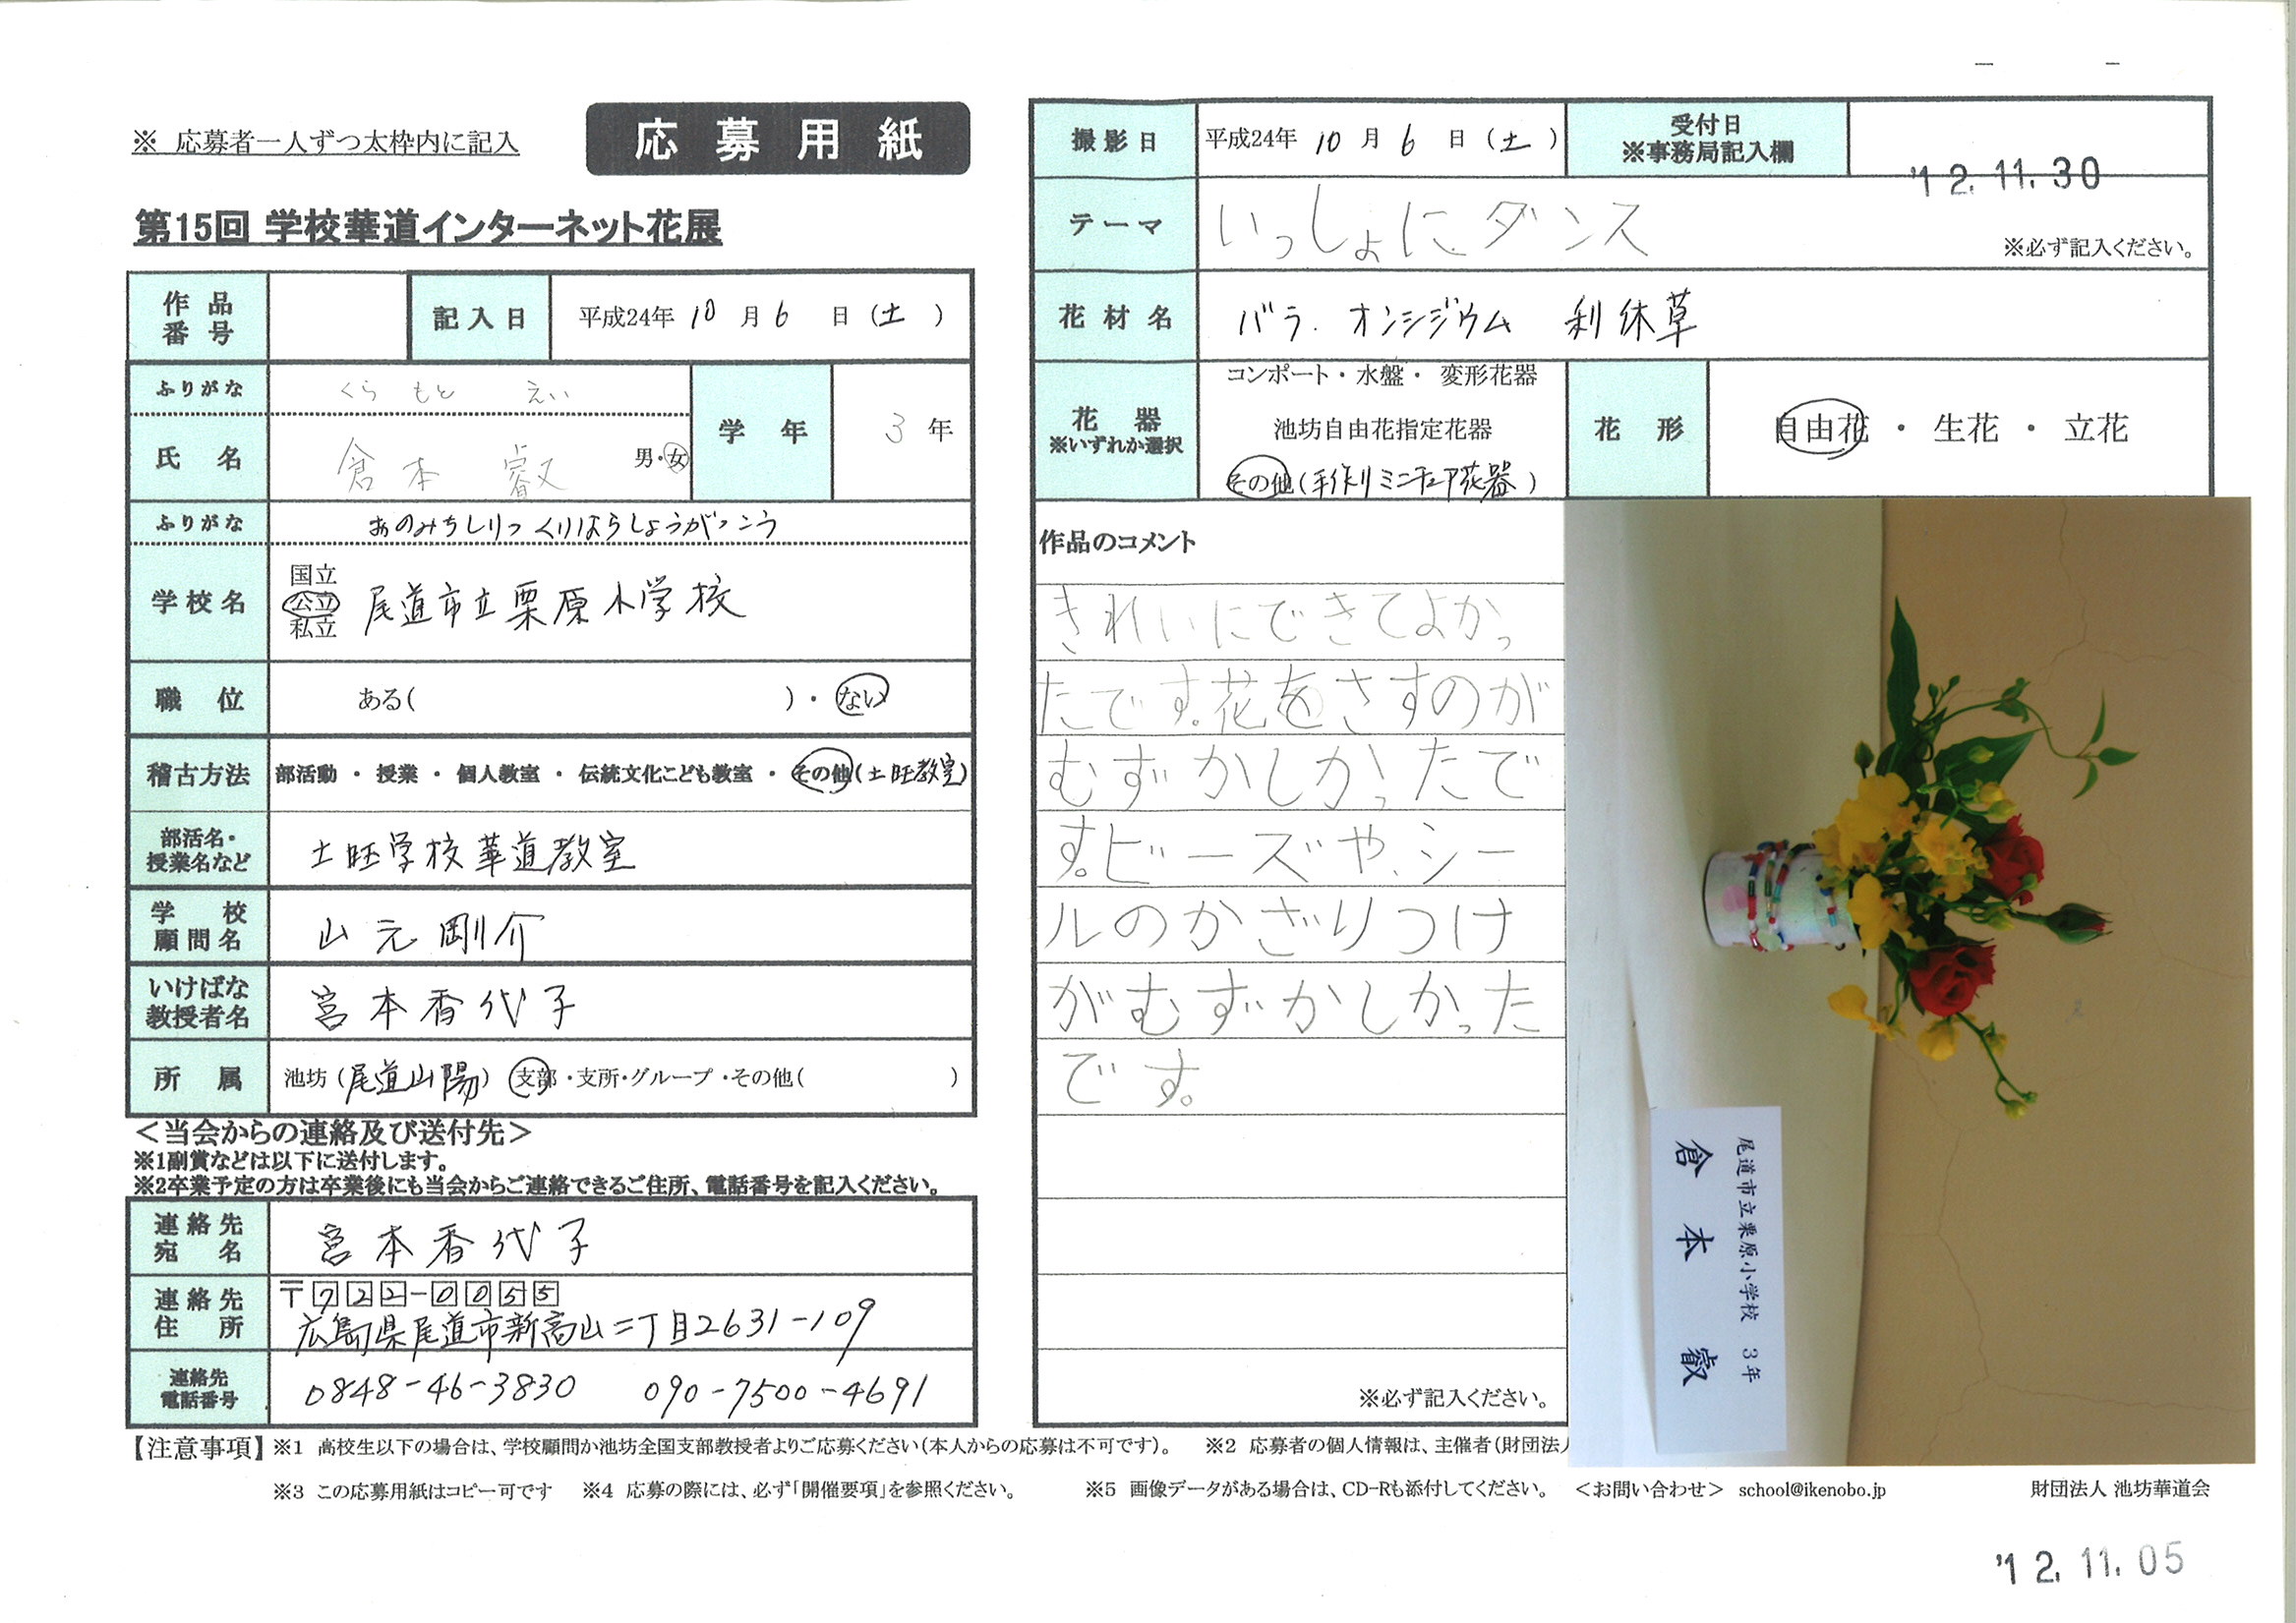 ※ 応募者一人ずつ太枠内に記入
応募用紙
第15回 学校華道インターネット花展
作品番号
記入日 平成24年 10 月 6 日 (土)
ふりがな くら もと えい
氏名 倉本 叡 男・女
学年 3 年
ふりがな おのみちしりつ くりはらしょうがっこう
学校名 国立 公立 私立 尾道市立栗原小学校
職位 ある( )・ない
稽古方法 部活動 ・ 授業 ・ 個人教室 ・ 伝統文化こども教室 ・ その他(土旺教室)
部活名・授業名など 土旺学校華道教室
学校顧問名 山元剛介
いけばな教授者名 宮本香代子
所属 池坊(尾道山陽) 支部・支所・グループ・その他( )
＜当会からの連絡及び送付先＞
※1副賞などは以下に送付します。
※2卒業予定の方は卒業後にも当会からご連絡できるご住所、電話番号を記入ください。
連絡先宛名 宮本香代子
連絡先住所 〒722-0055
広島県尾道市新高山二丁目2631-109
連絡先電話番号 0848-46-3830 090-7500-4691
撮影日 平成24年 10 月 6 日 (土)
受付日
※事務局記入欄
'12.11.30
テーマ いっしょに ダンス
※必ず記入ください。
花材名 バラ. オンシジウム 利休草
花器
※いずれか選択
コンポート・水盤・ 変形花器
池坊自由花指定花器
その他(手作りミニチュア花器)
花形 自由花 ・ 生花 ・ 立花
作品のコメント
きれいにできてよかっ
たです。花をさすのが
むずかしかったで
す。ビーズや、シー
ルのかざりつけ
がむずかしかった
です。
※必ず記入ください。
尾道市立栗原小学校 3年
倉本 叡
【注意事項】※1 高校生以下の場合は、学校顧問か池坊全国支部教授者よりご応募ください(本人からの応募は不可です)。 ※2 応募者の個人情報は、主催者(財団法人
※3 この応募用紙はコピー可です ※4 応募の際には、必ず「開催要項」を参照ください。 ※5 画像データがある場合は、CD-Rも添付してください。 ＜お問い合わせ＞ school@ikenobo.jp 財団法人 池坊華道会
'12.11.05